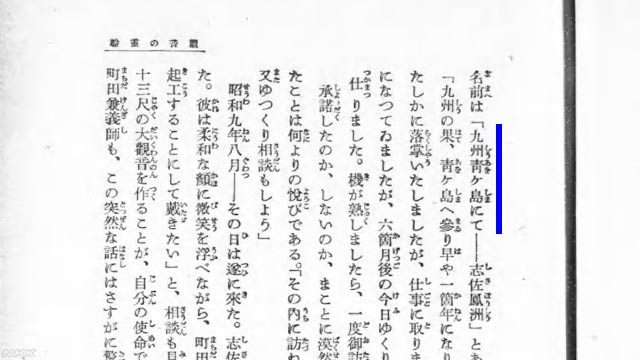 觀音の靈驗
名前は「九州靑ケ島にて——志佐鳳洲」とあ
「九州の果、靑ケ島へ參り早や一箇年になり
たしかに落掌いたしましたが、仕事に取りま
になつてゐましたが、六箇月後の今日ゆくり
仕りました。機が熟しましたら、一度御訪
承諾したのか、しないのか、まことに漠然
たことは何よりの悅びである。「その內に訪
又ゆつくり相談もしよう」
昭和九年八月——その日は遂に來た。志佐
た。彼は柔和な顏に微笑を浮べながら、町田
起工することにして戴きたい」と、相談も
十三尺の大觀音を作ることが、自分の使命で
町田兼義師も、この突然な話にはさすがに驚
NHK